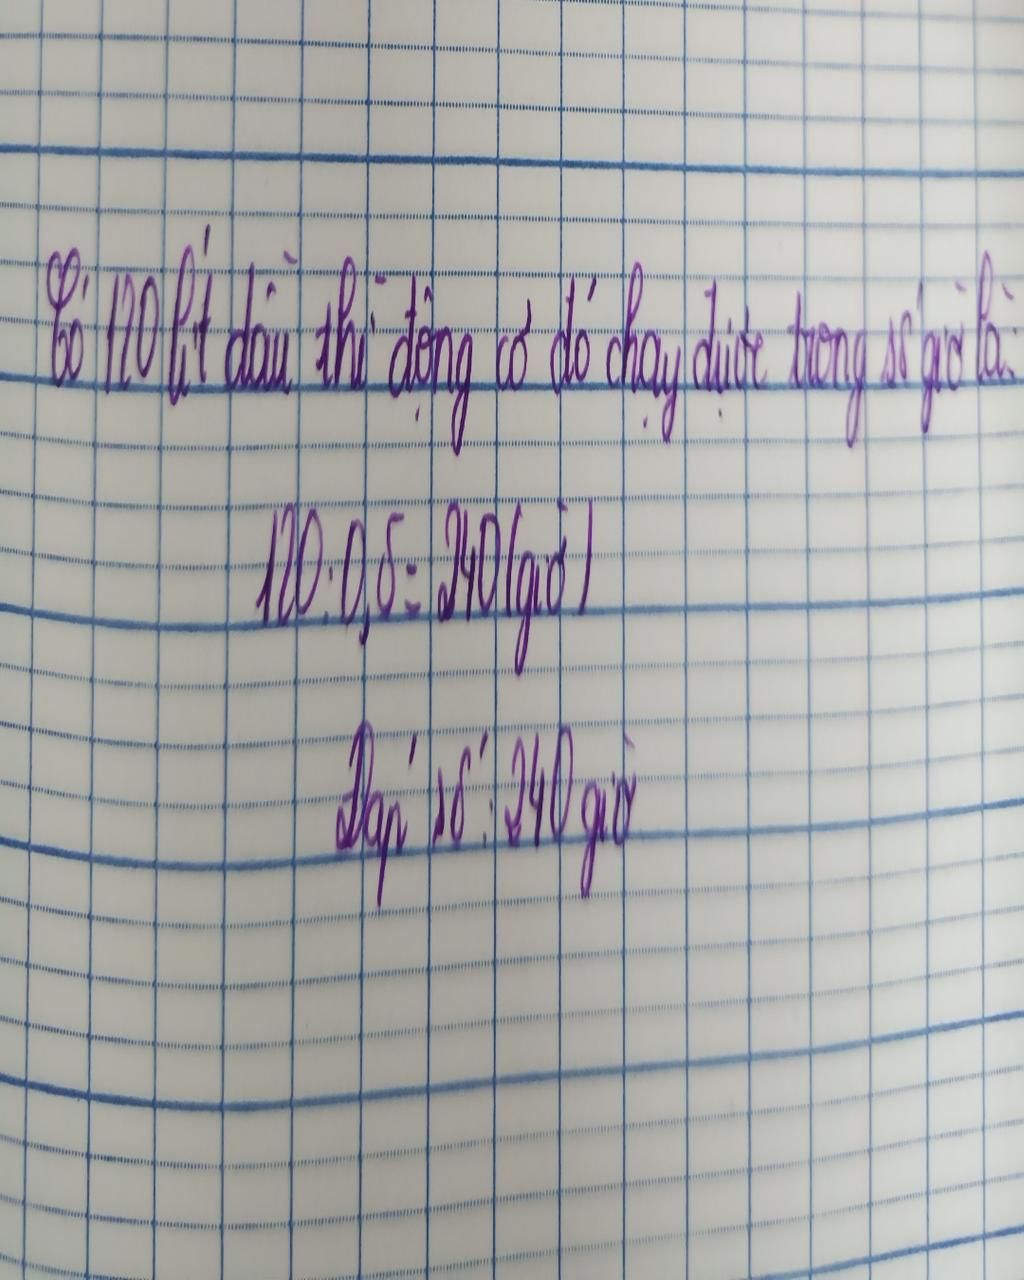 Có 120 lít dầu thì động cơ đó chạy được trong số giờ là:
120 : 0,5 = 240 (giờ)
Đáp số : 240 giờ